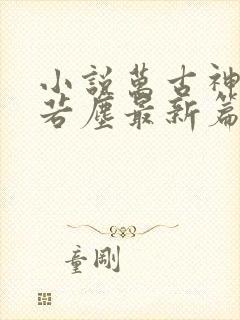 小說萬古神
若塵最新篇
童剛